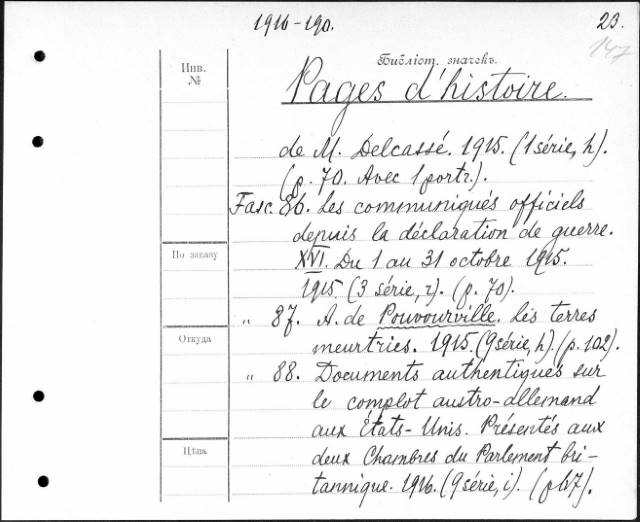 1916-190.
23.
147
Инв.
№
Библіот. значекъ.
Pages d'histoire.
de M. Delcassé. 1915. (1 série, h).
(p. 70. Avec 1 portr.).
Fasc. 86. Les communiqués officiels
depuis la déclaration de guerre.
XVI. Du 1 au 31 octobre 1915.
По заказу
1915. (3 série, r). (p. 70).
" 87. A. de Pouvourville. Les terres
Откуда
meurtries. 1915. (9 série, h). (p. 102).
" 88. Documents authentiques sur
le complot austro-allemand
aux États-Unis. Présentés aux
Цѣна
deux Chambres du Parlement bri-
tannique. 1916. (9 série, i). (p. 67).